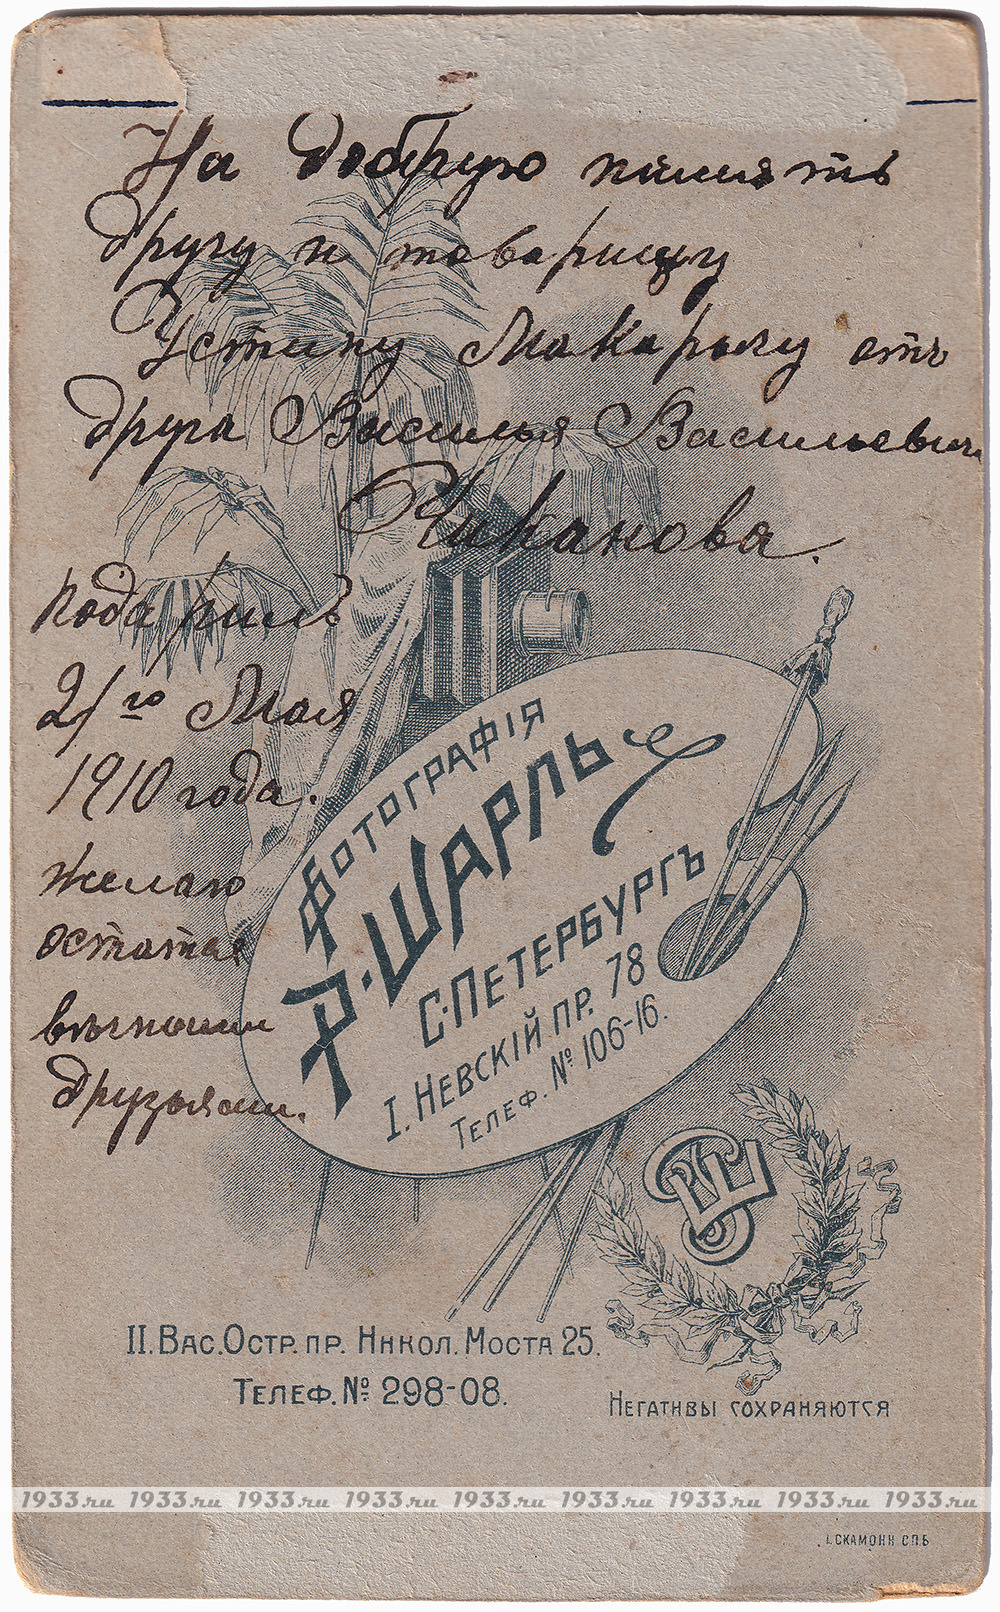 На добрую память
другу и товарищу
Устину Макарычу отъ
друга Василья Васильевича
Чиканова.
подарилъ
21го Мая
1910 года.
желаю
остатся
вѣчноми
друзьями.
ФОТОГРАФІЯ
Р. ШАРЛЬ
С-ПЕТЕРБУРГЪ
I. НЕВСКІЙ ПР. 78
ТЕЛЕФ. № 106-16.
II. ВАС. ОСТР. ПР. НИКОЛ. МОСТА 25.
ТЕЛЕФ. № 298-08.
НЕГАТИВЫ СОХРАНЯЮТСЯ
1933.ru 1933.ru 1933.ru 1933.ru 1933.ru 1933.ru 1933.ru 1933.ru 1933.ru
I. СКАМОНИ СПБ